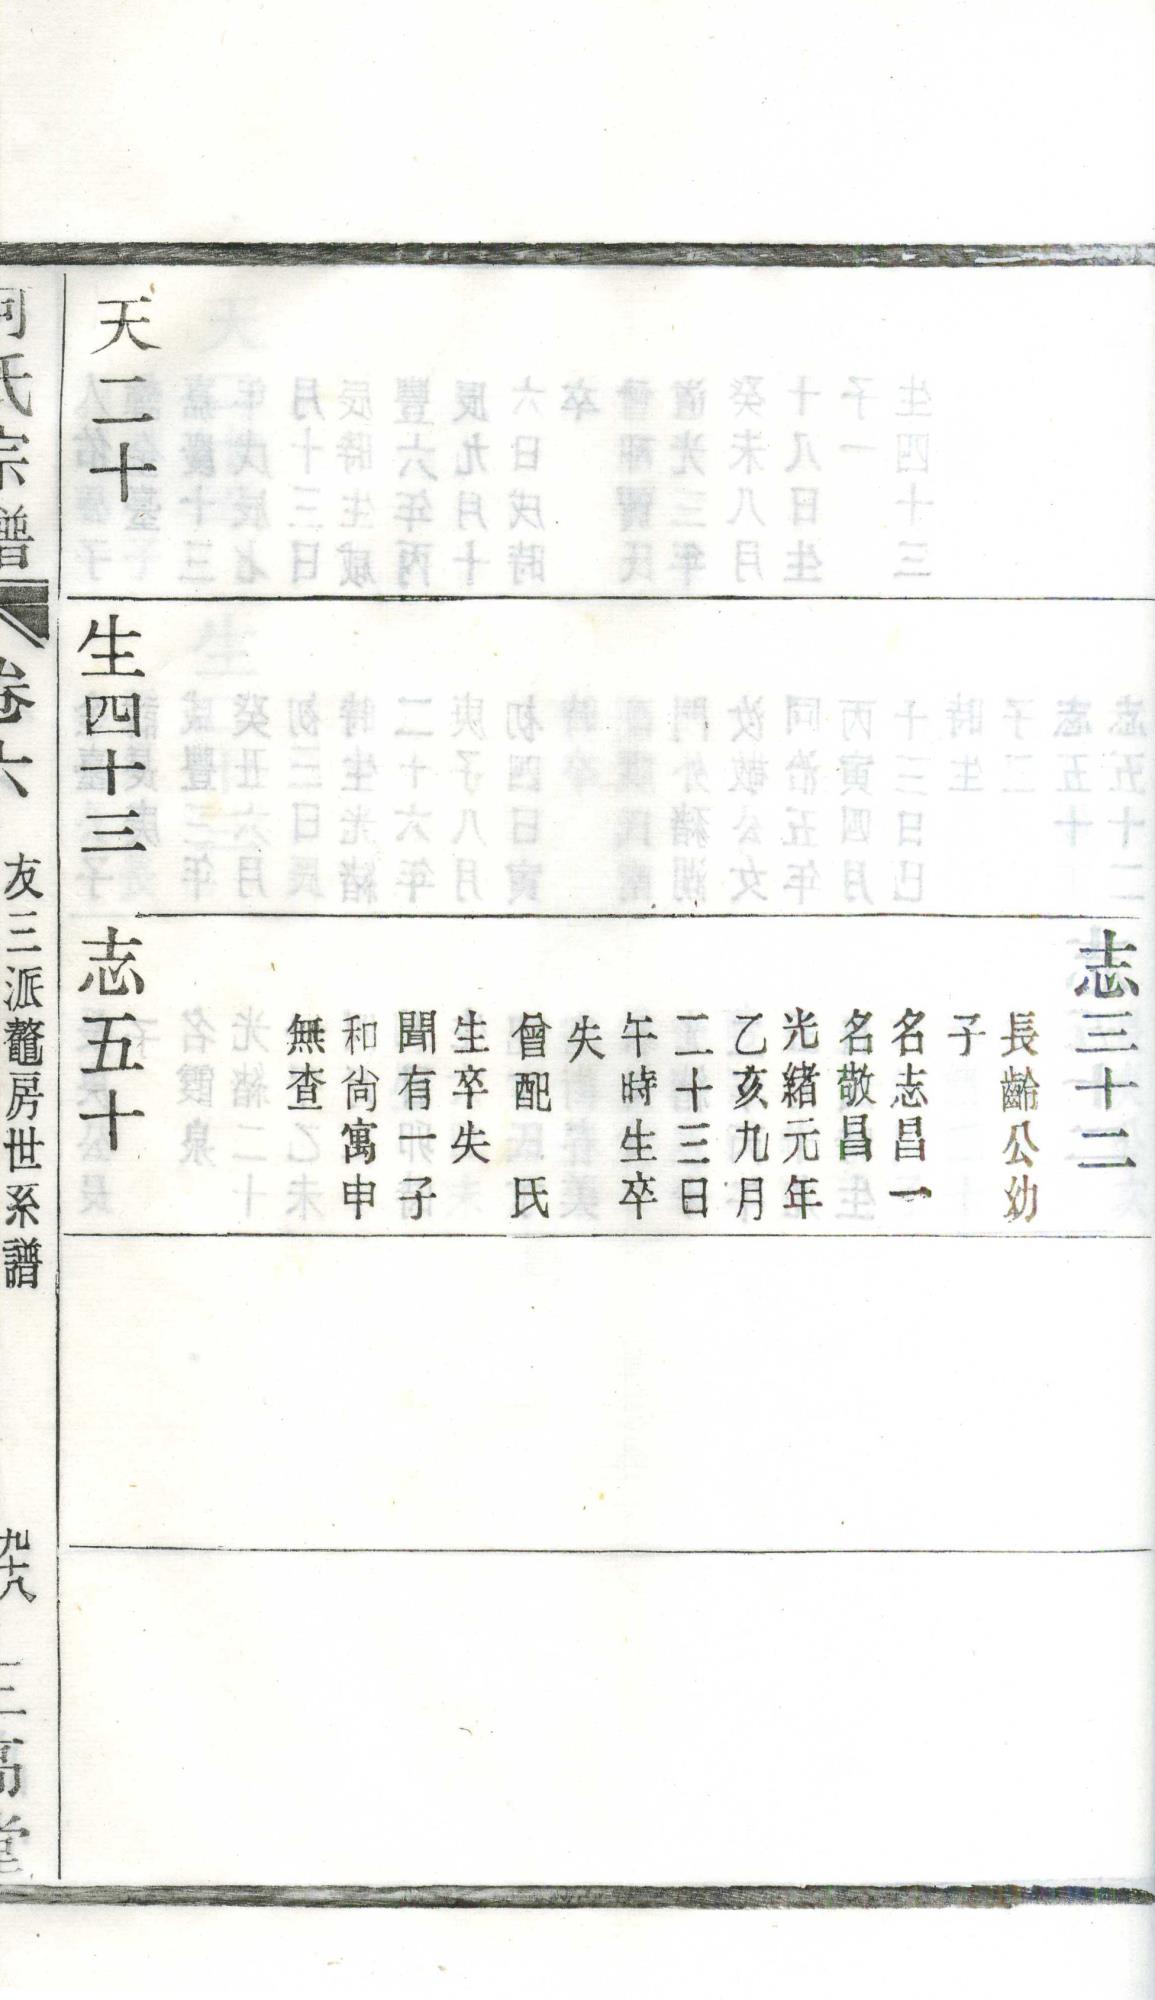 志三十二
長齡公幼
子
名志昌一
名敬昌
光緒元年
乙亥九月
二十三日
午時生卒
失
曾配 氏
生卒失
聞有一子
和尚寓申
無查
天二十
生四十三
志五十
氏宗譜
卷六
友三派鼇房世系譜
九十八
三高堂